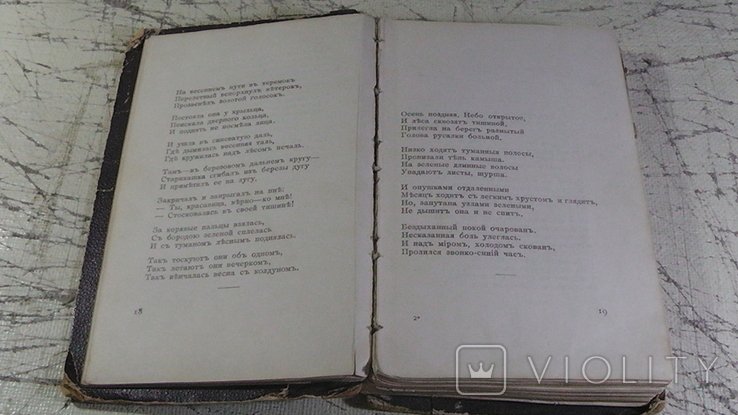 На весеннемъ пути въ теремокъ
Перелетный вспорхнулъ вѣтерокъ,
Прозвенѣлъ золотой голосокъ.
Постояла она у крыльца,
Поискала дверного кольца,
И поднять не посмѣла лица.
И ушла въ синеватую даль,
Гдѣ дымилась весенняя таль,
Гдѣ кружилась надъ лѣсомъ печаль.
Тамъ—въ березовомъ дальнемъ кругу—
Старикашка сгибалъ изъ березы дугу
И примѣтилъ ее на лугу.
Закричалъ и запрыгалъ на пнѣ:
— Ты, красавица, вѣрно—ко мнѣ!
— Стосковалась въ своей тишинѣ!
За корявые пальцы взялась,
Съ бородою зеленой сплелась
И съ туманомъ лѣснымъ поднялась.
Такъ тоскуютъ они объ одномъ,
Такъ летаютъ они вечеркомъ,
Такъ вѣнчалась весна съ колдуномъ.
18
Осень поздняя. Небо открытое,
И лѣса сквозятъ тишиной.
Прилегла на берегъ размытый
Голова русалки больной.
Низко ходятъ туманныя полосы,
Пронизали тѣнь камыша.
На зеленые длинные волосы
Упадаютъ листы, шурша.
И опушками отдаленными
Мѣсяцъ ходитъ съ легкимъ хрустомъ и глядитъ,
Но, запутана узлами зелеными,
Не дышитъ она и не спитъ.
Бездыханный покой очарованъ.
Несказанная боль улеглась.
И надъ міромъ, холодомъ скованъ,
Пролился звонко-синій часъ.
2*
19
VIOLITY